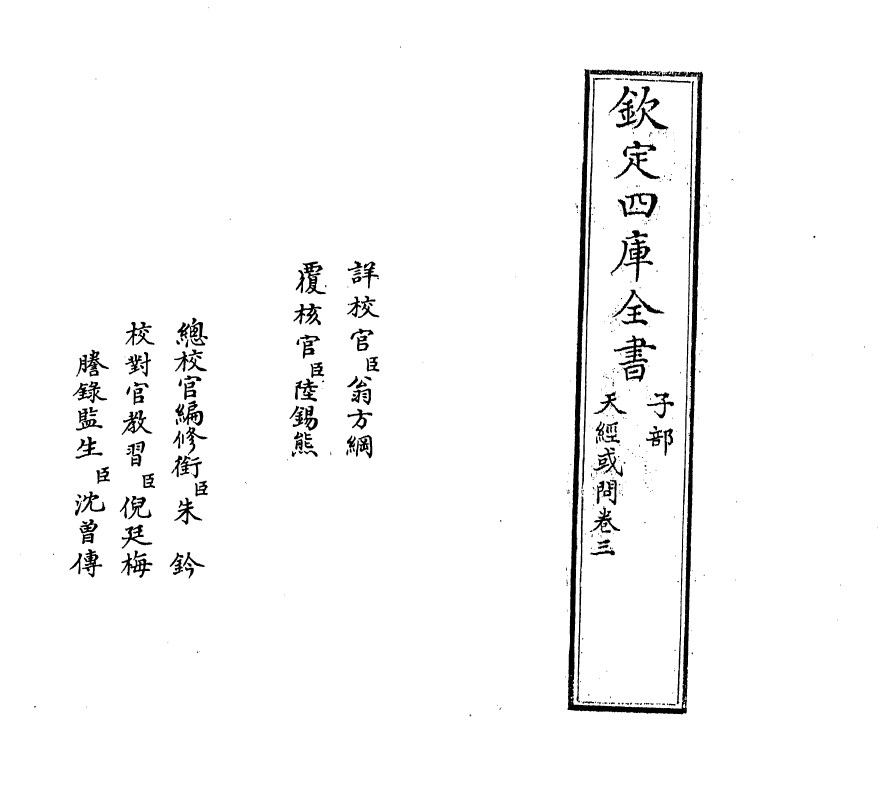 欽定四庫全書
子部
天經或問卷三
詳校官臣翁方綱
覆核官臣陸錫熊
總校官編修銜臣朱鈐
校對官教習臣倪廷梅
謄錄監生臣沈曾傳